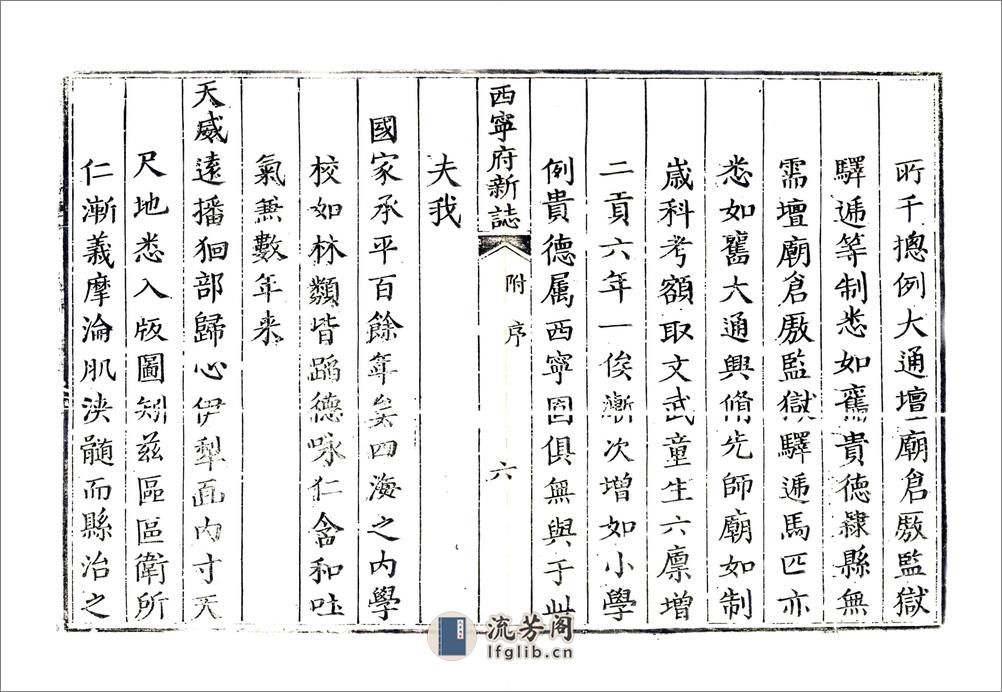 所千摠例大通壇廟倉厫監獄
驛遞等制悉如舊貴德隸縣無
需壇廟倉厫監獄驛遞馬匹亦
悉如舊大通興脩先師廟如制
歲科考額取文武童生六廪增
二貢六年一俟漸次增如小學
例貴德属西寧固俱無與于此
西寧府新誌
附序
六
夫我
國家承平百餘年矣四海之内學
校如林類皆蹈德咏仁含和吐
氣無數年来
天威遠播徊部歸心伊犁面内寸天
尺地悉入版圖矧兹區區衛所
仁漸義摩淪肌浹髄而縣治之
流芳阁
lfglib.cn